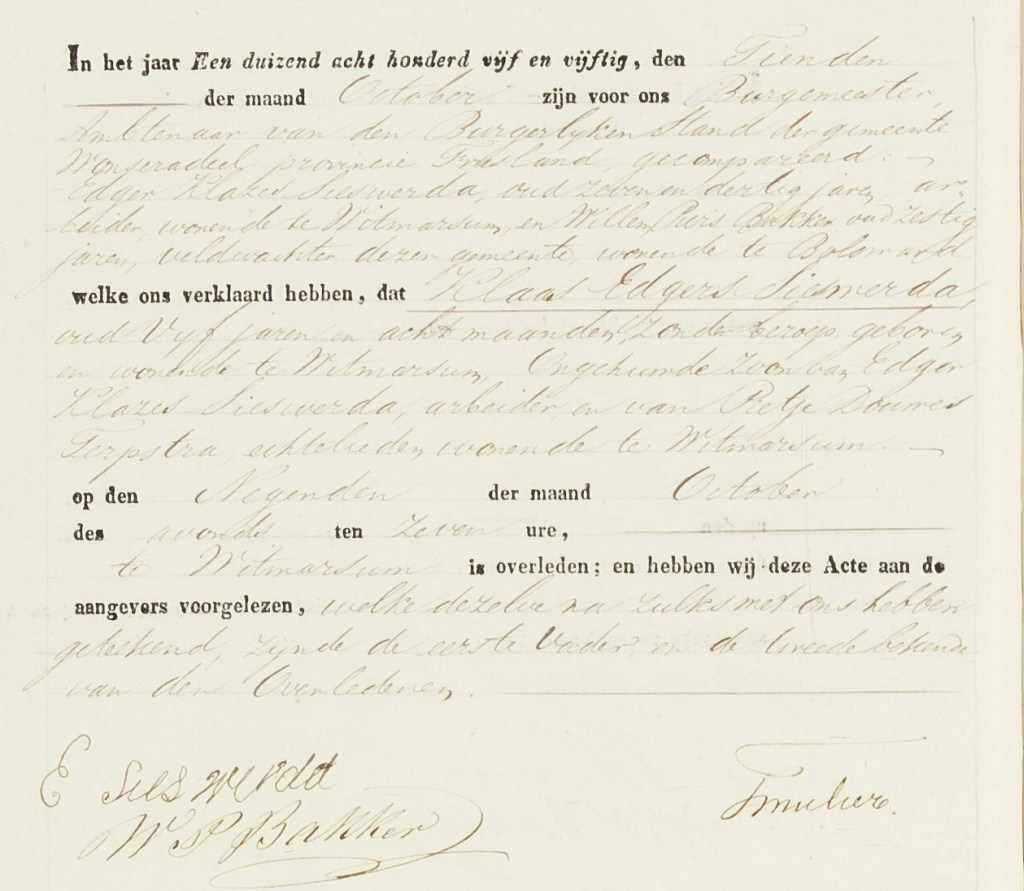 In het jaar Een duizend acht honderd vijf en vijftig, den Tienden
der maand October zijn voor ons Burgemeester,
Ambtenaar van den Burgerlyken Stand der gemeente
Wonseradeel provincie Friesland, gecompareerd:
Edger Klazes Sieswerda, oud zeven en dertig jaren, ar-
beider, wonende te Witmarsum, en Willem Bakker oud zestig
jaren, veldwachter dezer gemeente, wonende te Bolsward
welke ons verklaard hebben, dat Klaas Edgers Sieswerda,
oud Vyf jaren en acht maanden, zonder beroep, geboren
en wonende te Witmarsum, Ongehuwde zoon van Edger
Klazes Sieswerda, arbeider, en van Pietje Douwes
Terpstra, echtelieden, wonende te Witmarsum.
op den Negenden der maand October
des avonds ten zeven ure,
te Witmarsum is overleden; en hebben wij deze Acte aan de
aangevers voorgelezen, welke dezelve na zulks met ons hebben
geteekend, zynde de eerste Vader en de tweede bekende
van den Overledenen.
E Sieswerda
W P Bakker